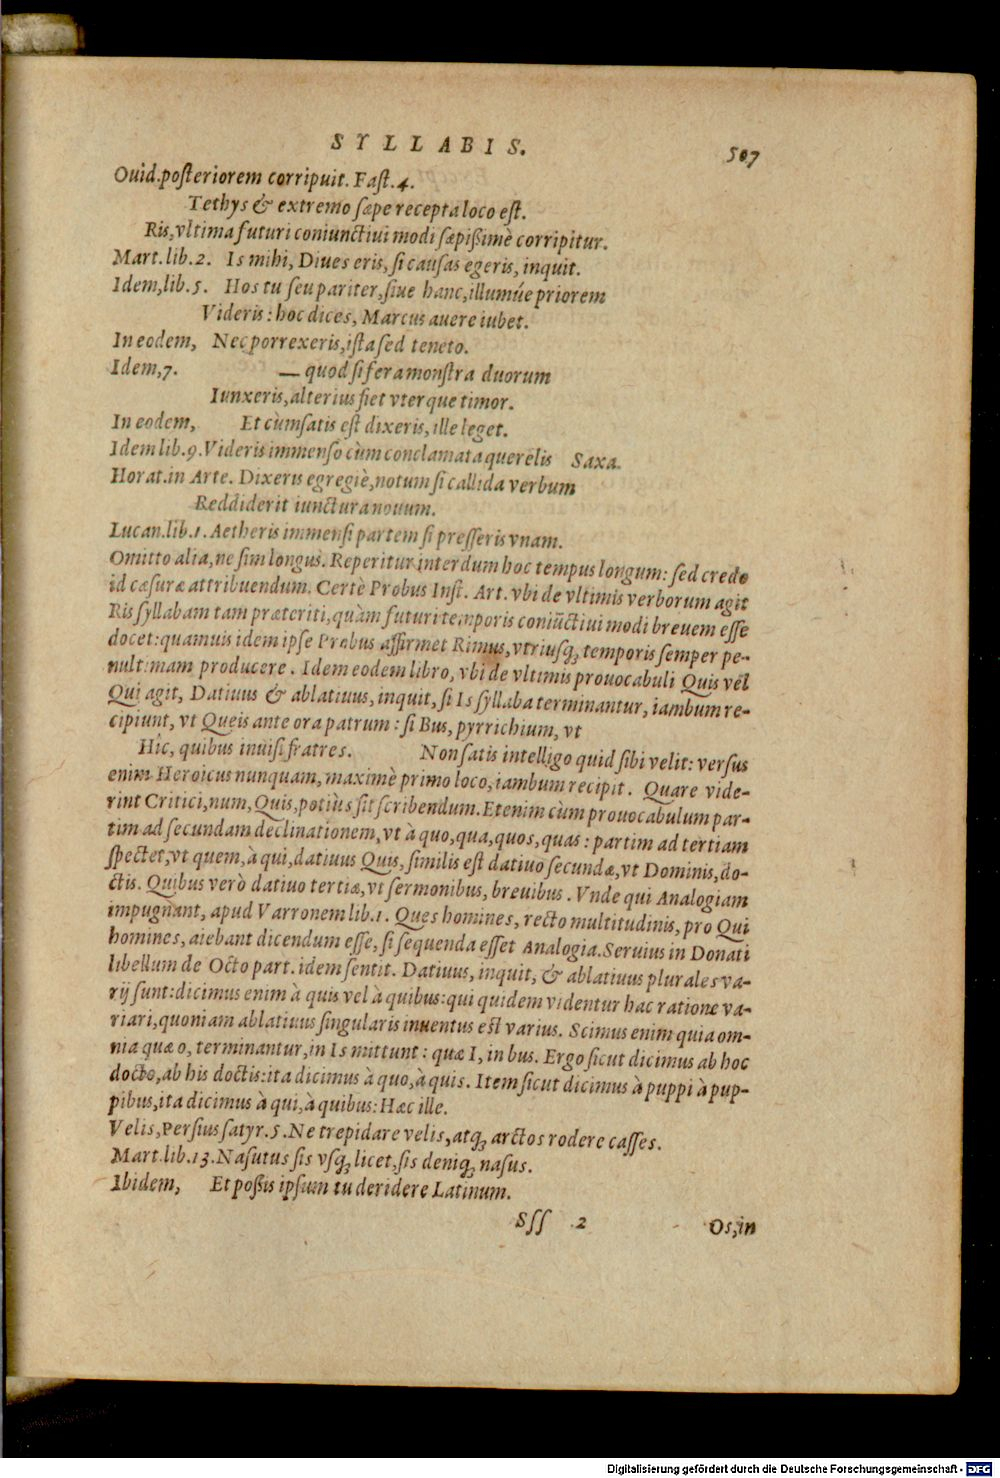 SYLLABIS. 507
Ouid.posteriorem corripuit. Fast.4.
Tethys & extremo sæpe recepta loco est.
Ris,vltima futuri coniunctiui modi sæpißimè corripitur.
Mart.lib.2. Is mihi, Diues eris, si causas egeris, inquit.
Idem,lib.5. Hos tu seu pariter,siue hanc,illumúe priorem
Videris : hoc dices, Marcus auere iubet.
In eodem, Nec porrexeris,ista sed teneto.
Idem,7. — quod si fera monstra duorum
Iunxeris,alterius fiet vterque timor.
In eodem, Et cùm satis est dixeris, ille leget.
Idem lib.9.Videris immenso cùm conclamata querelis Saxa.
Horat.in Arte. Dixeris egregiè,notum si callida verbum
Reddiderit iunctura nouum.
Lucan.lib.1. Aetheris immensi partem si presseris vnam.
Omitto alia,ne sim longus. Reperitur interdum hoc tempus longum: sed credo
id cæsuræ attribuendum. Certè Probus Inst. Art. vbi de vltimis verborum agit
Ris syllabam tam præteriti,quàm futuri temporis coniūctiui modi breuem esse
docet:quamuis idem ipse Probus affirmet Rimus,vtriusq; temporis semper pe-
nultimam producere . Idem eodem libro, vbi de vltimis prouocabuli Quis vel
Qui agit, Datiuus & ablatiuus, inquit, si Is syllaba terminantur, iambum re-
cipiunt, vt Queis ante ora patrum : si Bus, pyrrichium, vt
Hîc, quibus inuisi fratres. Non satis intelligo quid sibi velit: versus
enim Heroicus nunquam, maximè primo loco, iambum recipit . Quare vide-
rint Critici,num, Quis,potiùs sit scribendum.Etenim cùm prouocabulum par-
tim ad secundam declinationem, vt à quo,qua,quos,quas : partim ad tertiam
spectet,vt quem,à qui,datiuus Quis, similis est datiuo secundæ,vt Dominis,do-
ctis. Quibus verò datiuo tertiæ,vt sermonibus, breuibus . Vnde qui Analogiam
impugnant, apud Varronem lib.1. Ques homines, recto multitudinis, pro Qui
homines, aiebant dicendum esse, si sequenda esset Analogia.Seruius in Donati
libellum de Octo part. idem sentit. Datiuus, inquit, & ablatiuus plurales va-
rij sunt:dicimus enim à quis vel à quibus:qui quidem videntur hac ratione va-
riari,quoniam ablatiuus singularis inuentus est varius. Scimus enim quia om-
nia quæ o, terminantur,in Is mittunt : quæ I, in bus. Ergo sicut dicimus ab hoc
docto,ab his doctis:ita dicimus à quo,à quis. Item sicut dicimus à puppi à pup-
pibus,ita dicimus à qui,à quibus: Hæc ille.
Velis,Persius satyr.5.Ne trepidare velis,atq; arctos rodere casses.
Mart.lib.13.Nasutus sis vsq; licet,sis deniq; nasus.
Ibidem, Et poßis ipsum tu deridere Latinum.
Sss 2 Os,in
Digitalisierung gefördert durch die Deutsche Forschungsgemeinschaft - DFG